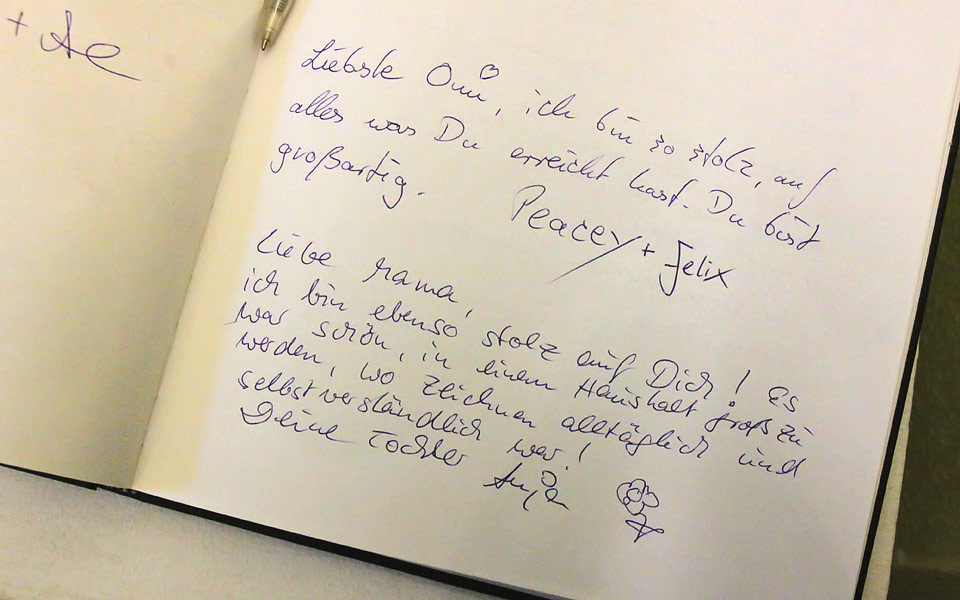 + Ae
Liebste Omi, ich bin so stolz, auf
alles was Du erreicht hast. Du bist
großartig.
Peacey + Felix
Liebe Mama,
ich bin ebenso stolz auf Dich! Es
war schön, in einem Haushalt groß zu
werden, wo Zeichnen alltäglich und
selbstverständlich war!
Deine Tochter
Anja